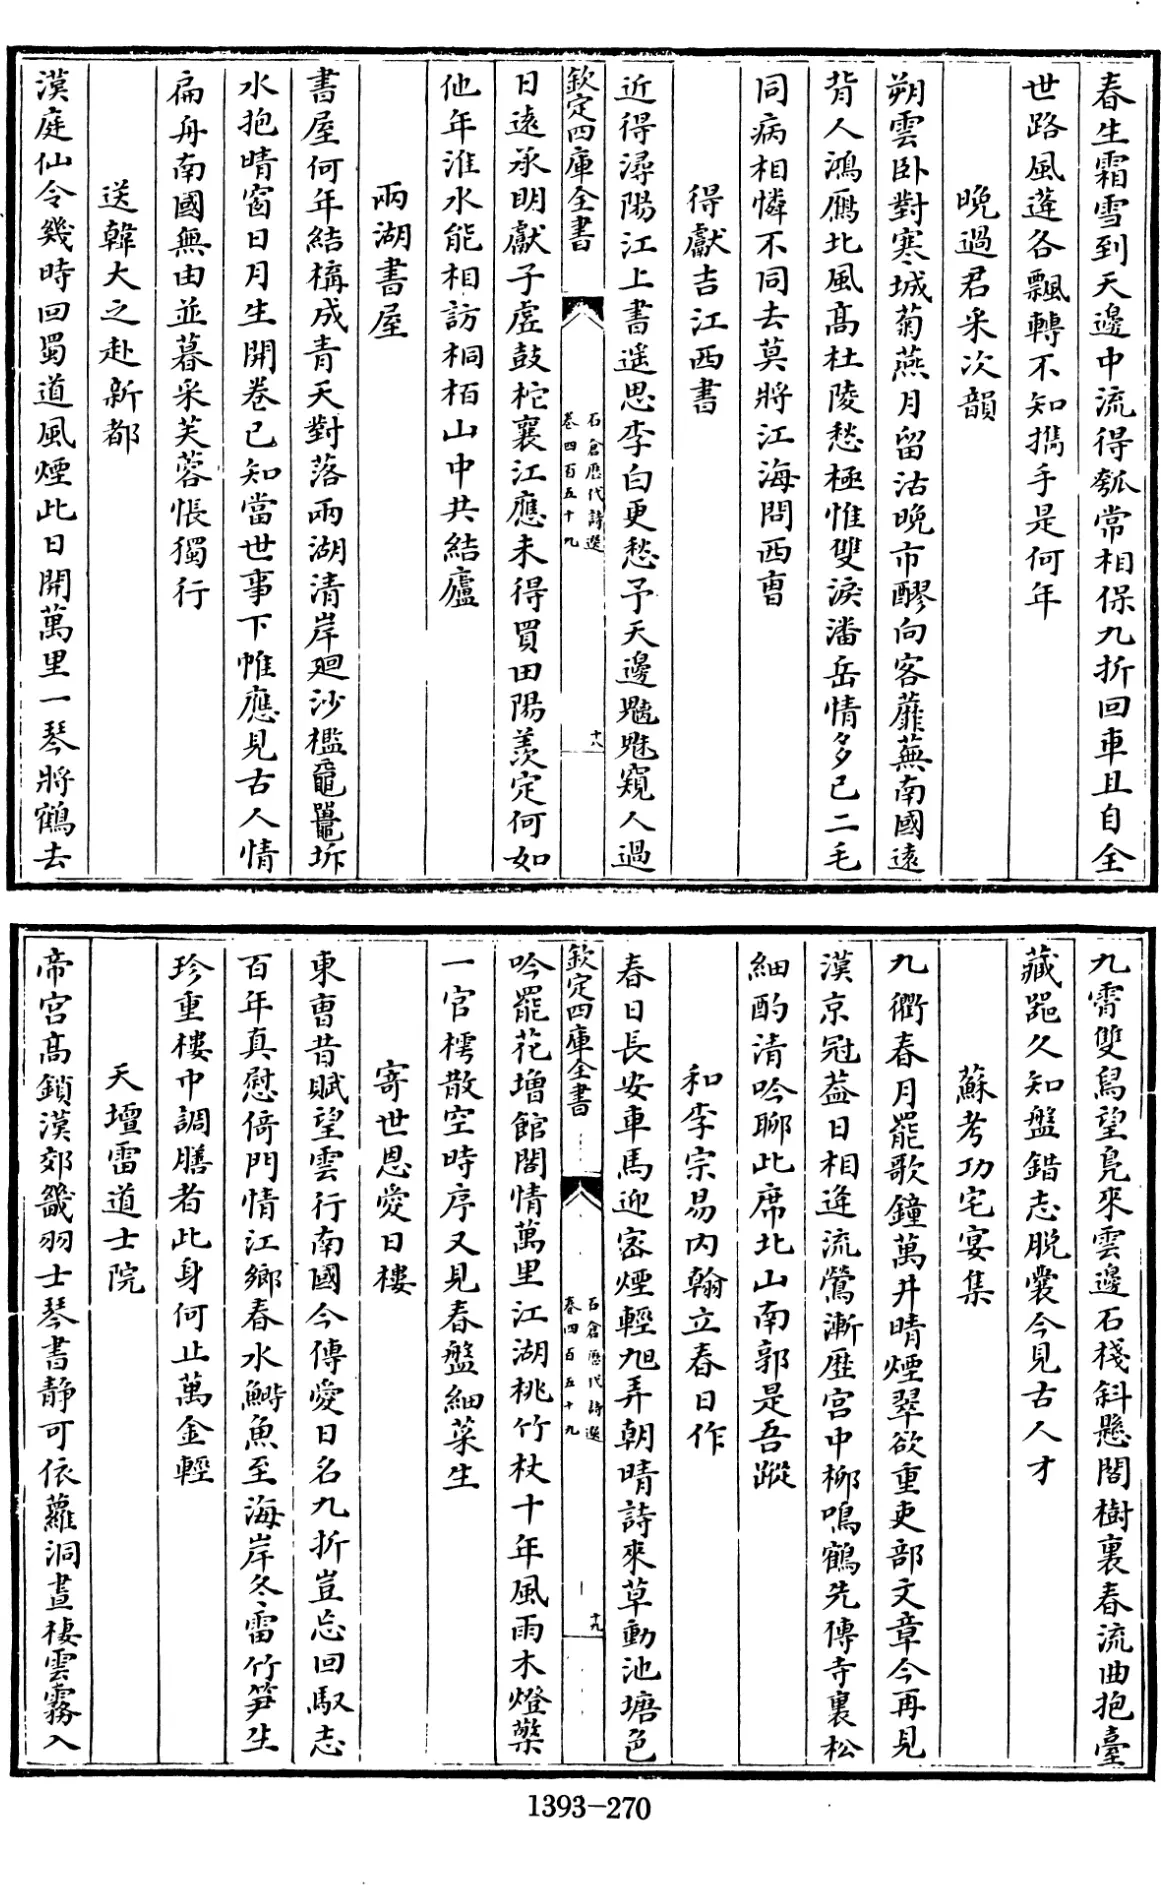 春生霜雪到天邊中流得瓠常相保九折回車且自全
世路風蓬各飄轉不知攜手是何年
晚過君采次韻
朔雲卧對寒城菊燕月留沽晚市醪向客蘼蕪南國遠
背人鴻鴈北風高杜陵愁極惟雙淚潘岳情多已二毛
同病相憐不同去莫將江海問西曹
得獻吉江西書
近得潯陽江上書遥思李白更愁予天邊魑魅窺人過
欽定四庫全書
石倉歷代詩選
卷四百五十九
十八
日遠承明獻子虛鼓柁襄江應未得買田陽羨定何如
他年淮水能相訪桐栢山中共結廬
兩湖書屋
書屋何年結構成青天對落兩湖清岸廻沙檻黿鼉坼
水抱晴窗日月生開卷已知當世事下帷應見古人情
扁舟南國無由並暮采芙蓉悵獨行
送韓大之赴新都
漢庭仙令幾時回蜀道風煙此日開萬里一琴將鶴去
九霄雙舄望鳧來雲邊石棧斜懸閣樹裏春流曲抱臺
藏器久知盤錯志脱囊今見古人才
蘇考功宅宴集
九衢春月罷歌鐘萬井晴煙翠欲重吏部文章今再見
漢京冠葢日相逢流鶯漸歴宫中柳鳴鶴先傳寺裏松
細酌清吟聊此席北山南郭是吾蹤
和李宗易内翰立春日作
春日長安車馬迎宻煙輕旭弄朝晴詩來草動池塘色
欽定四庫全書
石倉歷代詩選
卷四百五十九
十九
吟罷花增館閣情萬里江湖桃竹杖十年風雨木燈檠
一官樗散空時序又見春盤細菜生
寄世恩愛日樓
東曹昔賦望雲行南國今傳愛日名九折豈忘回馭志
百年真慰倚門情江鄉春水鰣魚至海岸冬雷竹笋生
珍重樓中調膳者此身何止萬金輕
天壇雷道士院
帝宫高鎖漢郊畿羽士琴書静可依蘿洞晝棲雲霧入
1393-270